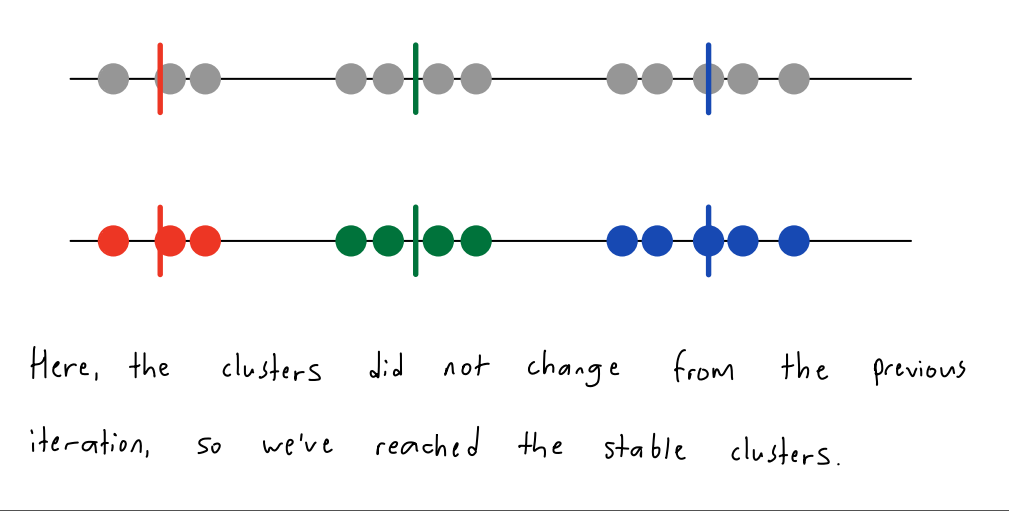 Here, the clusters did not change from the previous
iteration, so we've reached the stable clusters.